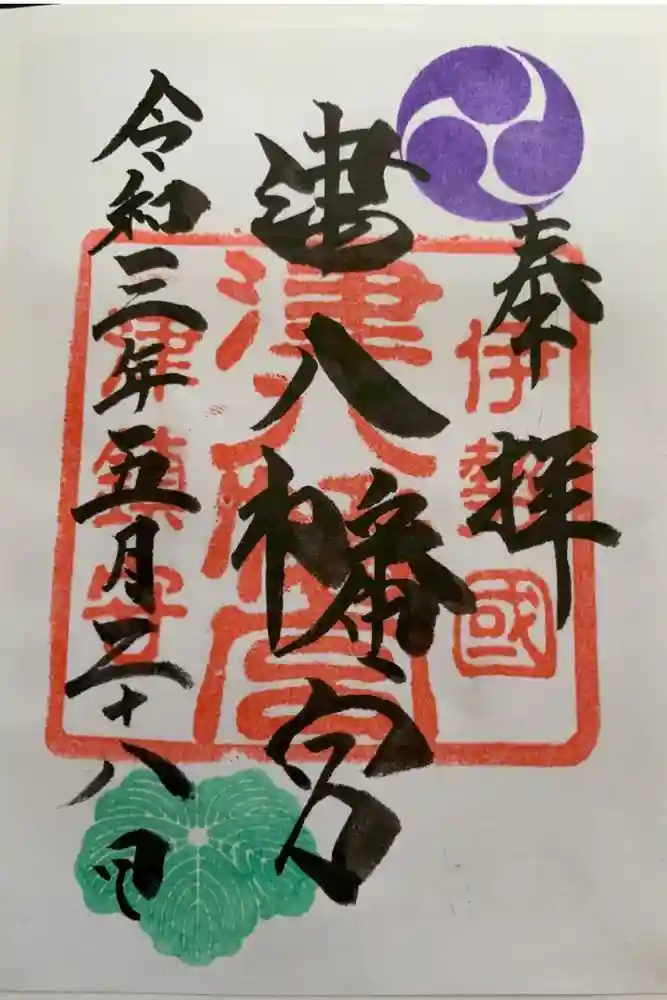 奉拝
伊勢國
津八幡宮
津八幡宮
令和三年五月二十八日
津鎮守